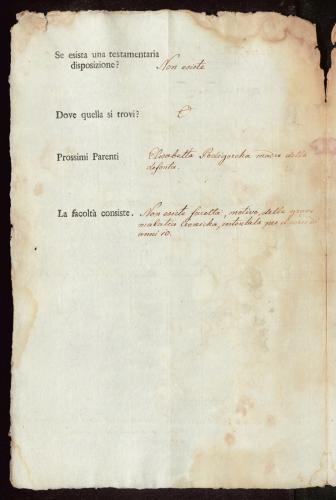 Se esista una testamentaria
disposizione? Non esiste
Dove quella si trovi?
Prossimi Parenti Elisabetta madre della
defonta.
La facoltà consiste. Non esiste facoltà, motivo, della grave
malattia per
anni 10.